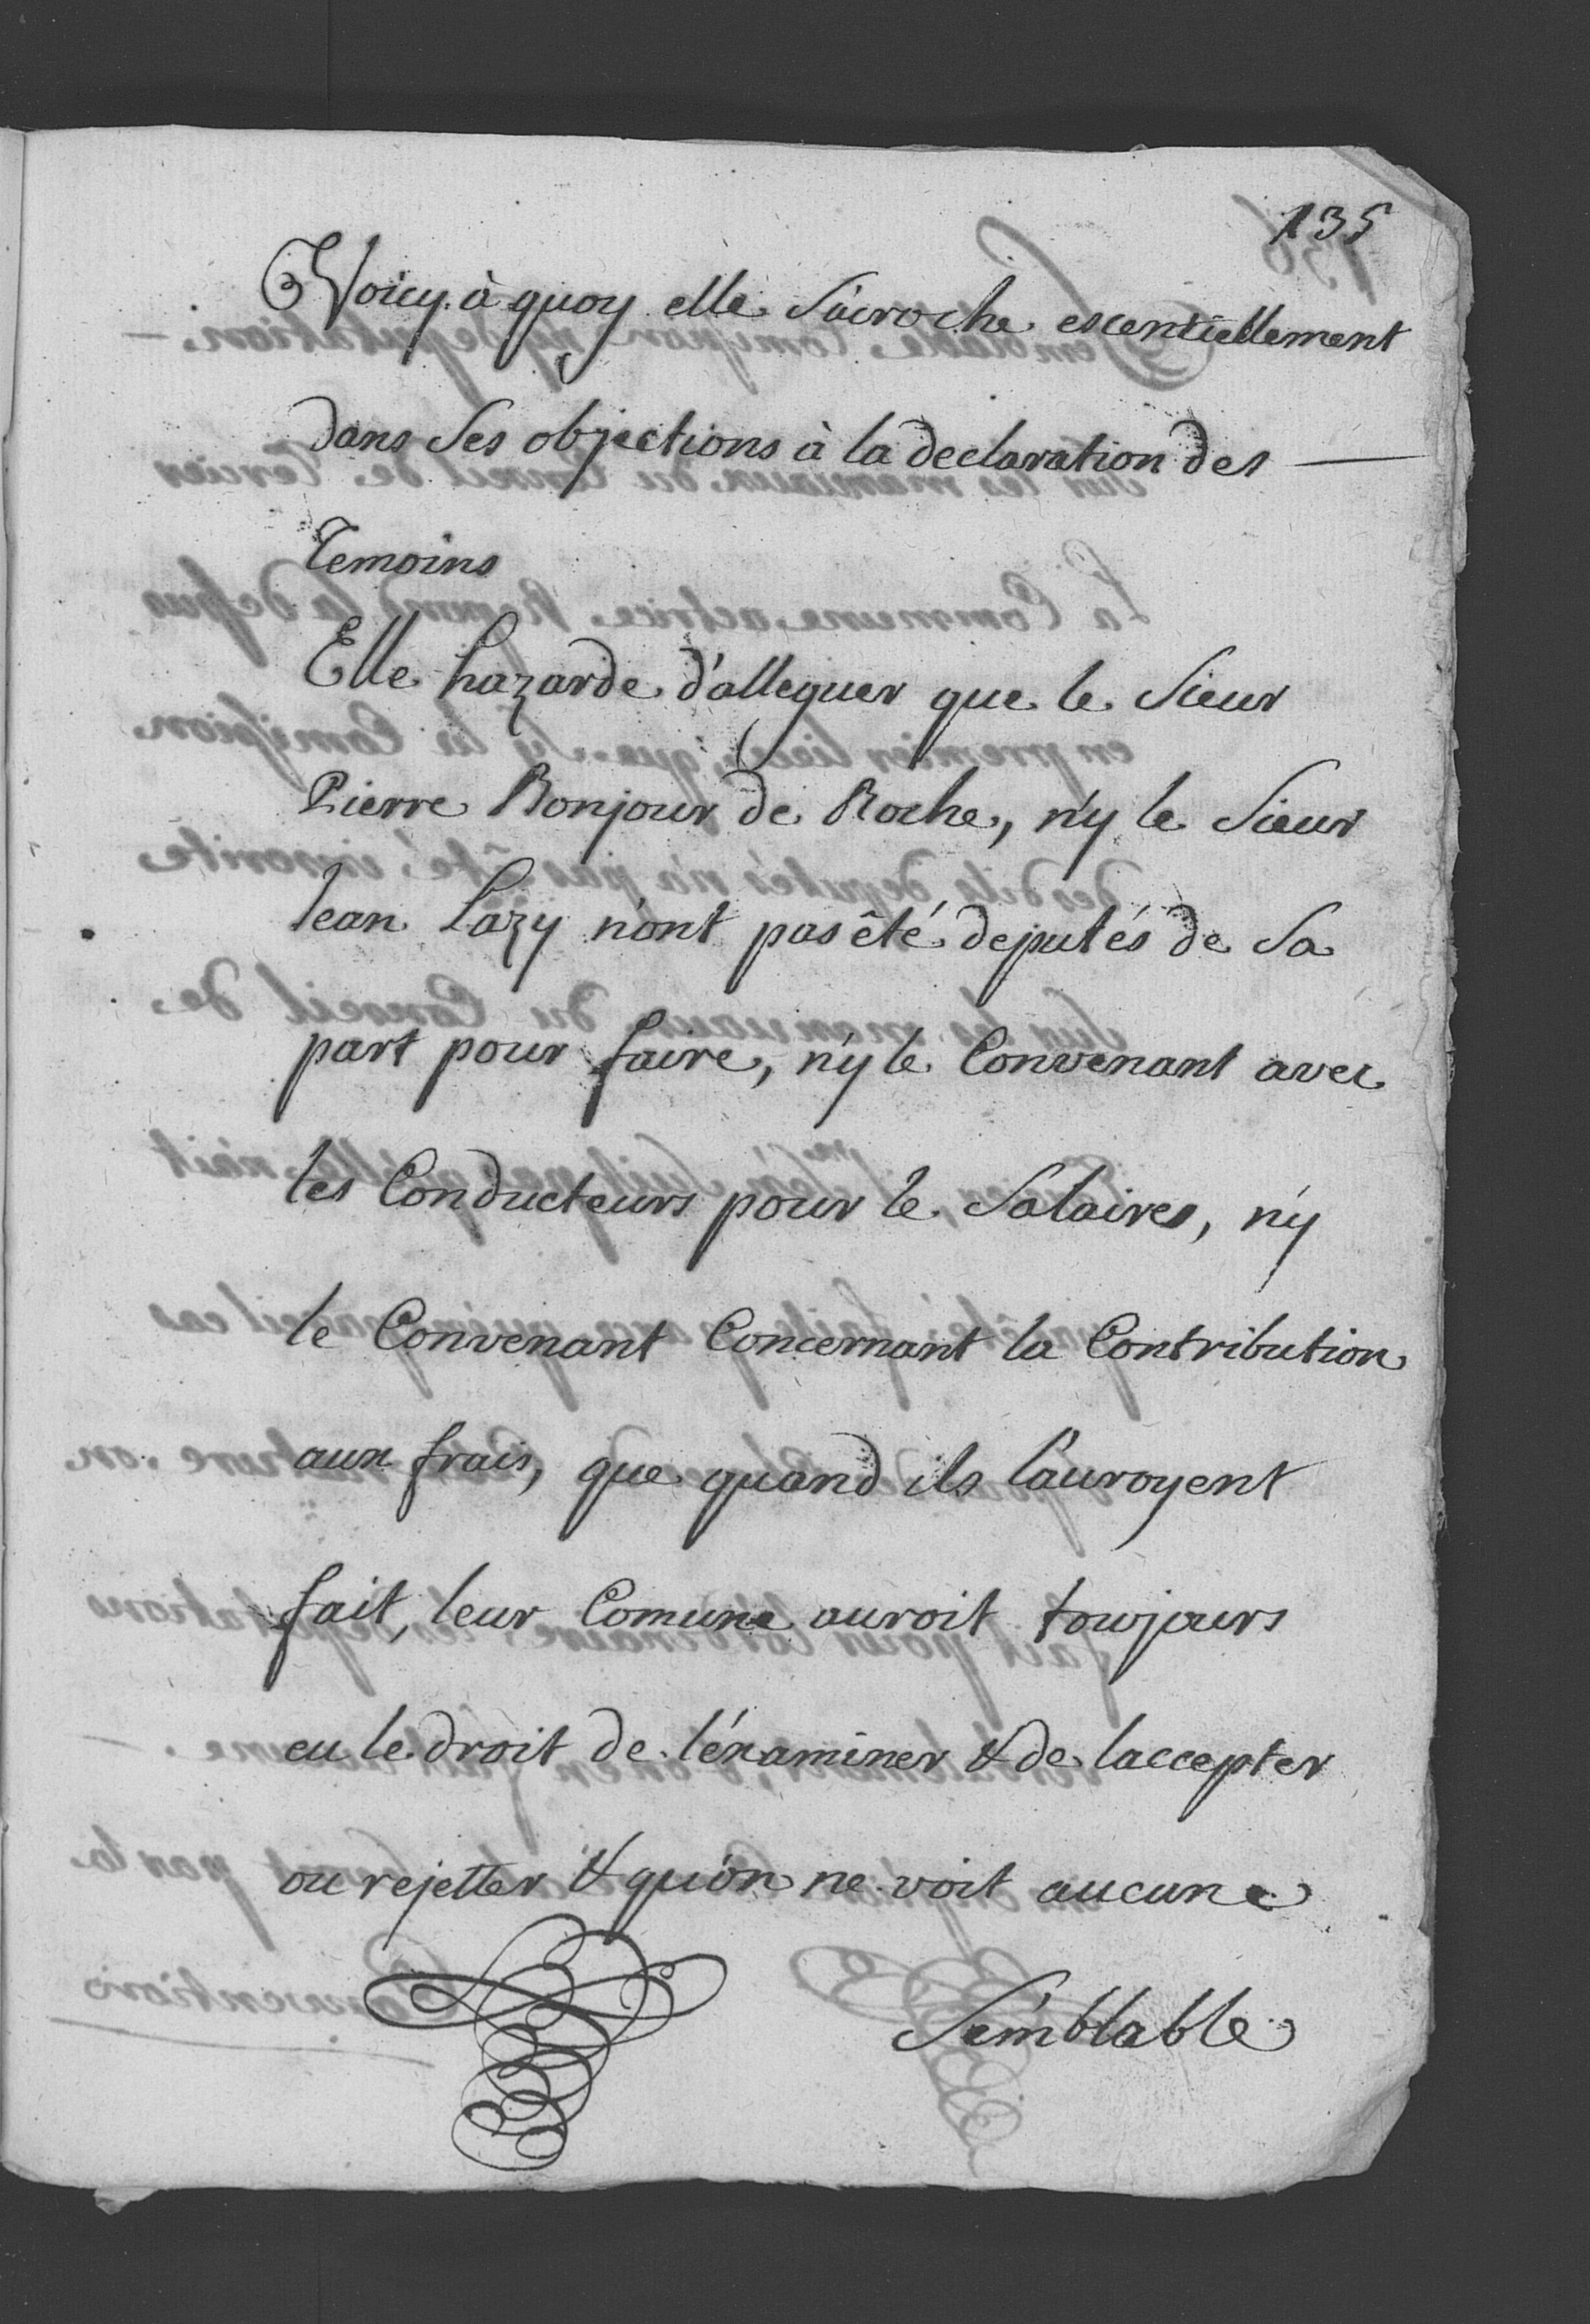 135
Voicy à quoy elle s'àcroche escentiellement
dans ses objections à la declaration des
Temoins
Elle hazarde d'alleguer que le Sieur
Pierre Bonjour de Roche, n'y le Sieur
Jean Lazy n'ont pas êté deputés de sa
part pour faire, n'y le Convenant avec
les Conducteurs pour le Salaires, n'y
le Convenant Concernant la Contribution
aux frais, que quand ils l'auroyent
fait, leur Comune auroit toujours
eu le droit de l'éxaminer & de laccepter
ou rejetter & qu'on ne voit aucune
Semblable